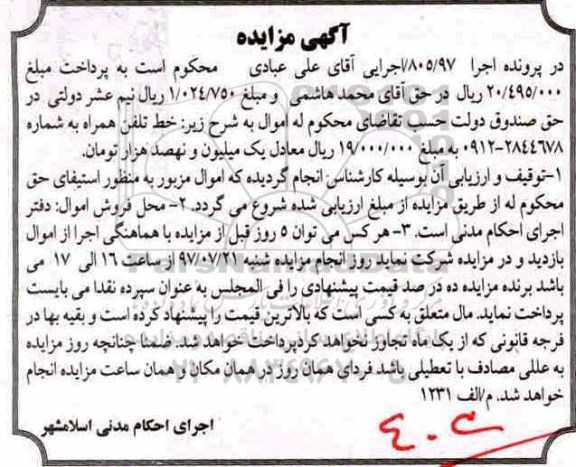 آگهی مزایده
در پرونده اجرا ۸۰۵/۹۷/اجرایی آقای علی عبادی محکوم است به پرداخت مبلغ
۲۰/۴۹۵/۰۰۰ ریال در حق آقای محمد هاشمی و مبلغ ۱/۰۲۴/۷۵۰ ریال نیم عشر دولتی در
حق صندوق دولت حسب تقاضای محکوم له اموال به شرح زیر: خط تلفن همراه به شماره
۰۹۱۲-۲۸۴۴۶۷۸ به مبلغ ۱۹/۰۰۰/۰۰۰ ریال معادل یک میلیون و نهصد هزار تومان.
۱-توقیف و ارزیابی آن بوسیله کارشناس انجام گردیده که اموال مزبور به منظور استیفای حق
محکوم له از طریق مزایده از مبلغ ارزیابی شده شروع می گردد. ۲- محل فروش اموال: دفتر
اجرای احکام مدنی است. ۳- هر کس می توان ۵ روز قبل از مزایده با هماهنگی اجرا از اموال
بازدید و در مزایده شرکت نماید روز انجام مزایده شنبه ۹۷/۰۷/۲۱ از ساعت ۱۶ الی ۱۷ می
باشد برنده مزایده ده در صد قیمت پیشنهادی را فی المجلس به عنوان سپرده نقدا می بایست
پرداخت نماید. مال متعلق به کسی است که بالاترین قیمت را پیشنهاد کرده است و بقیه بها در
فرجه قانونی که از یک ماه تجاوز نخواهد کرد پرداخت خواهد شد. ضمنا چنانچه روز مزایده
به عللی مصادف با تعطیلی باشد فردای همان روز در همان مکان و همان ساعت مزایده انجام
خواهد شد. م/الف ۱۲۳۱
اجرای احکام مدنی اسلامشهر
ParsNamadData